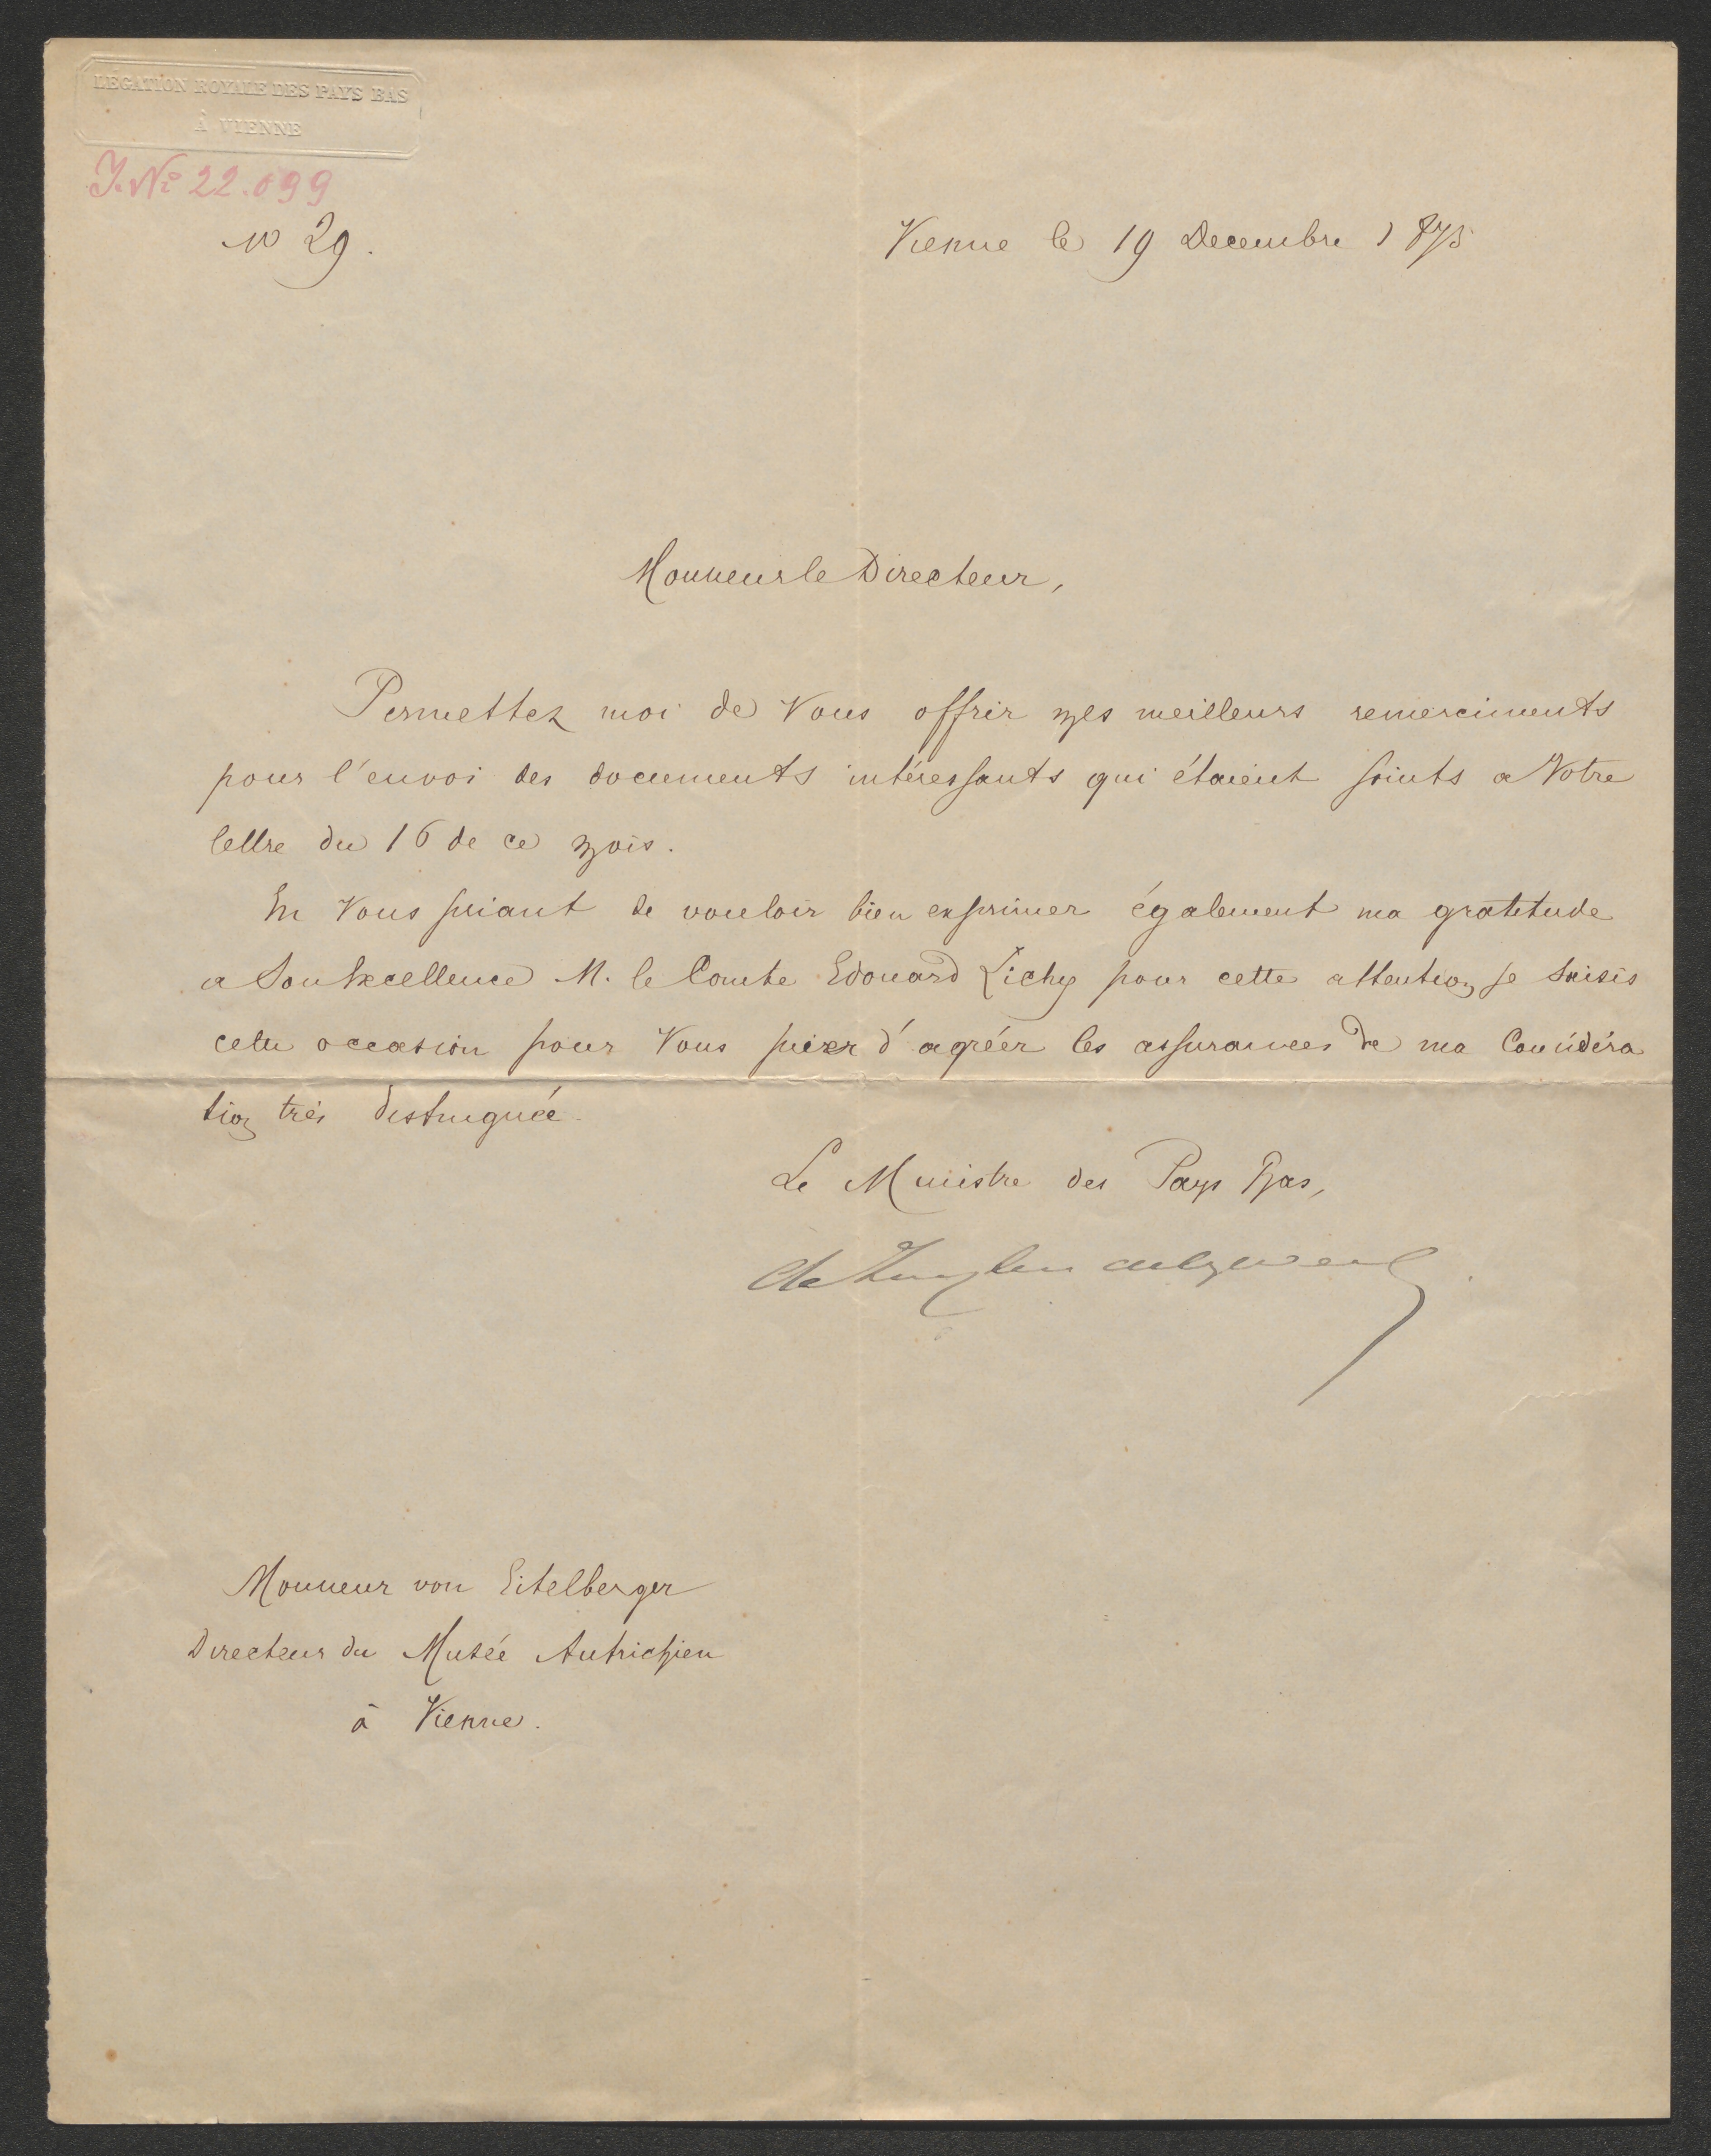 LEGATION ROYALE DES PAYS BAS
À VIENNE
J. No 22.099
No 29.
Vienne le 19 Decembre 1875
Monsieur le Directeur,
Permettez moi de Vous offrir mes meilleurs remerciments
pour l'envoi des documents intéressants qui étaient joints a Votre
lettre du 16 de ce mois.
En Vous priant de vouloir bien exprimer également ma gratitude
a Son Excellence M. le Comte Edouard Zichy pour cette attention je saisis
cette occasion pour Vous prier d'agréer les assurances de ma Considéra
tion très distinguée.
Le Ministre des Pays Bas,
Monsieur von Eitelberger
Directeur du Musée Autrichien
à Vienne.